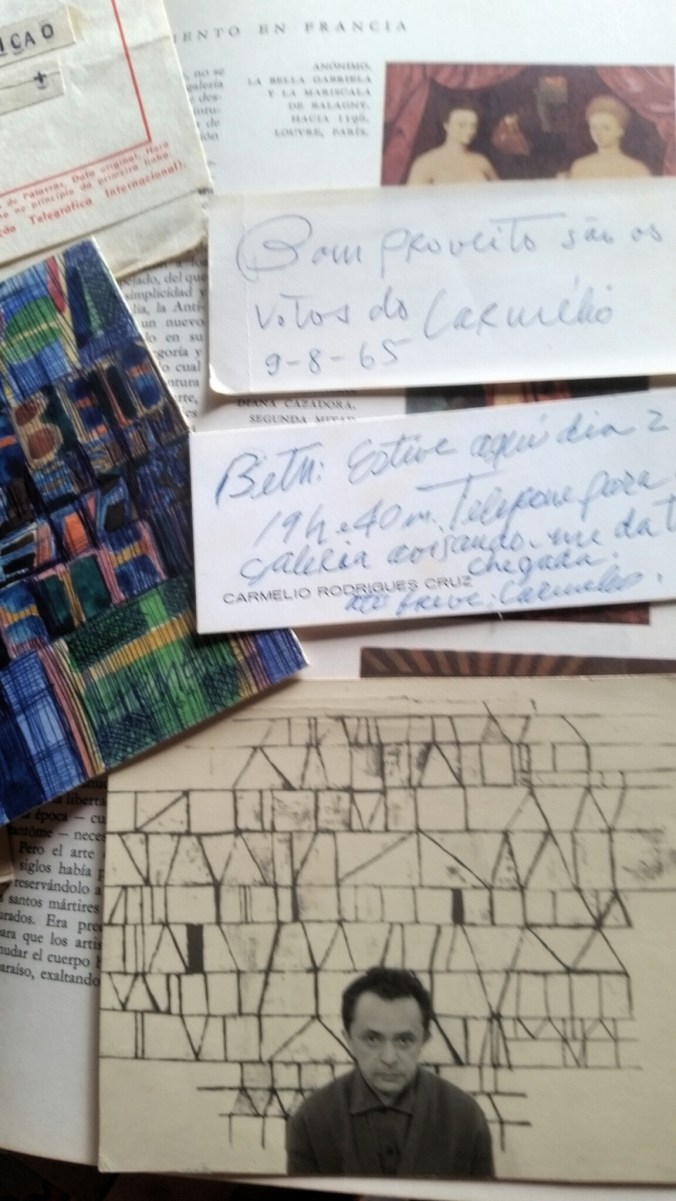 ICAO
±
de Palavras, Data original, Hora
no princípio da primeira linha
ção Telegráfica Internacional).
IENTO EN FRANCIA
no se
galería
des-
de
ión
ANÓNIMO,
LA BELLA GABRIELA
Y LA MARISCALA
DE BALAGNY.
HACIA 1596.
LOUVRE, PARÍS.
Bom proveito são os
votos do Carmélio
9-8-65
ejado, del que
simplicidad y
lia, la Anti-
un nuevo
do en su
goría y
o cual
ntura
rte,
les
DIANA CAZADORA,
SEGUNDA MITAD
Beth: Estive aqui dia 2
19h e 40m. Telefone para
galeria avisando-me da t
chegada.
CARMELIO RODRIGUES CRUZ
até breve, Carmelio.
liberta
época — cu
fantôme — neces
Pero el arte
siglos había p
reservándolo a
santos mártires
urados. Era pre
ara que los artis
nudar el cuerpo h
araíso, exaltando